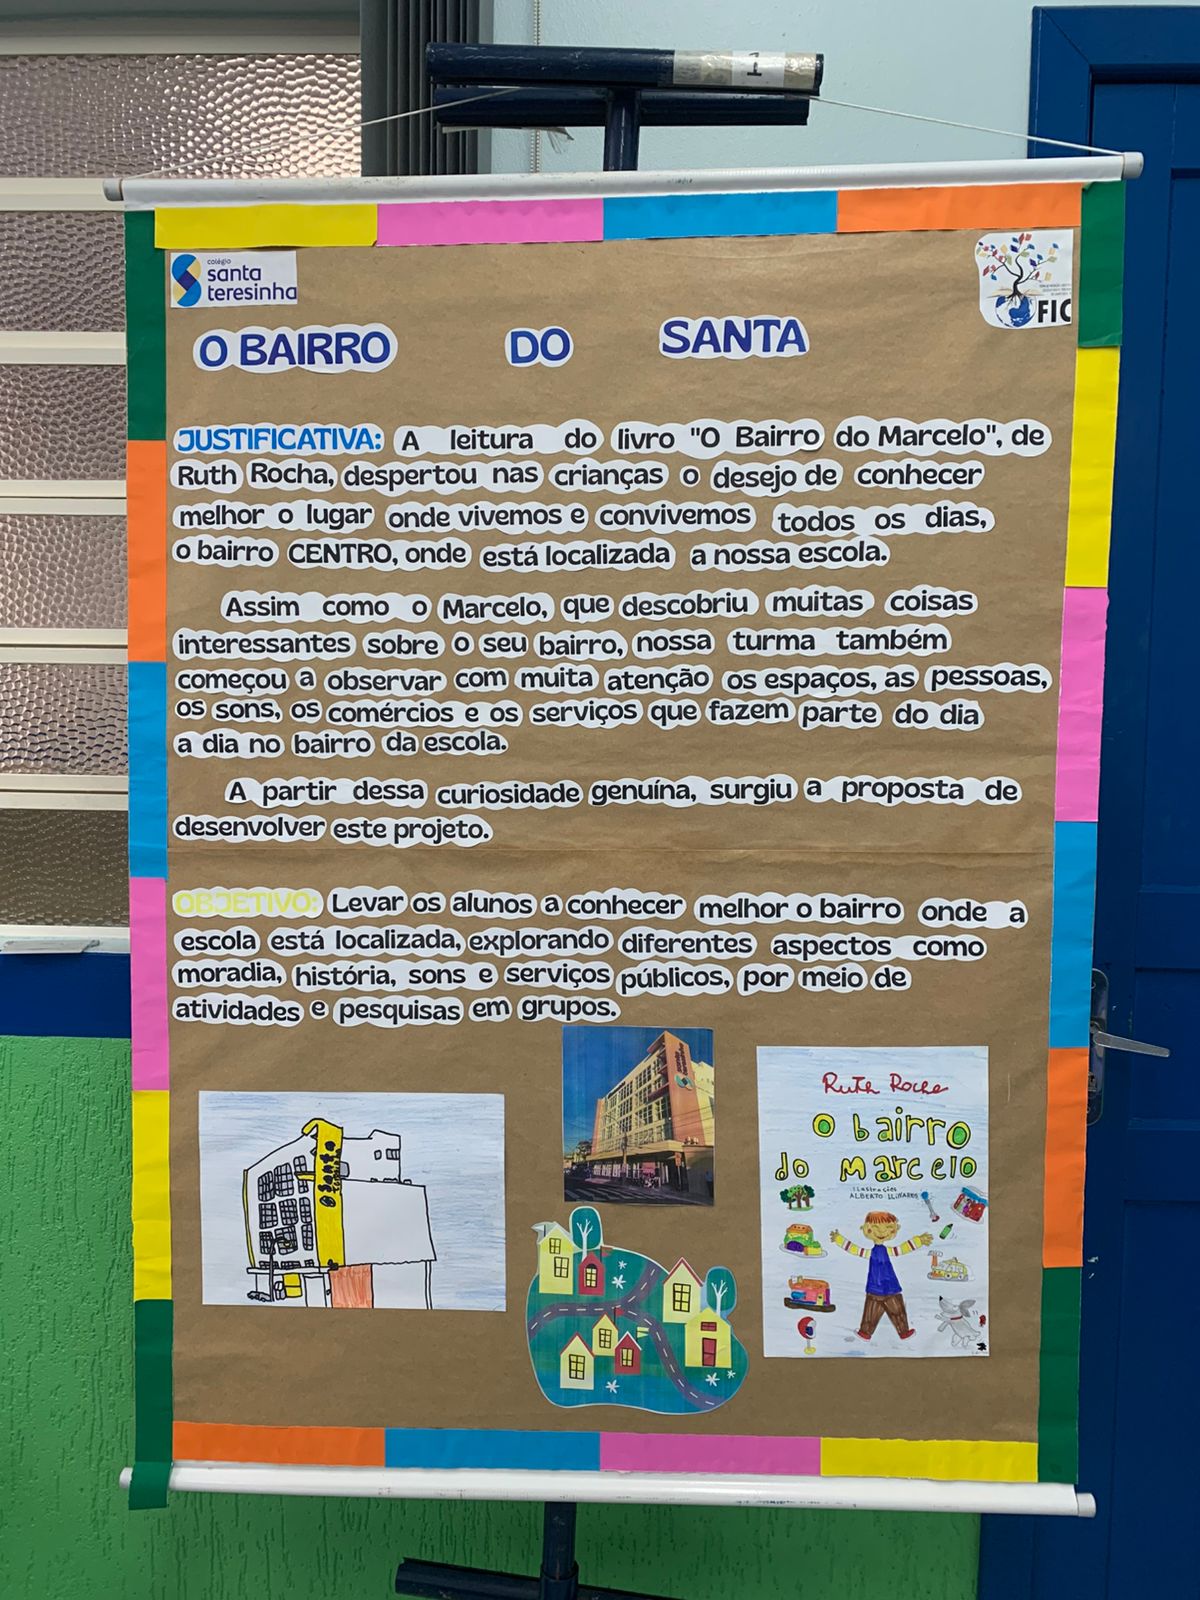 1
colégio
santa
teresinha
FIC
O BAIRRO DO SANTA
JUSTIFICATIVA: A leitura do livro "O Bairro do Marcelo", de
Ruth Rocha, despertou nas crianças o desejo de conhecer
melhor o lugar onde vivemos e convivemos todos os dias,
o bairro CENTRO, onde está localizada a nossa escola.
Assim como o Marcelo, que descobriu muitas coisas
interessantes sobre o seu bairro, nossa turma também
começou a observar com muita atenção os espaços, as pessoas,
os sons, os comércios e os serviços que fazem parte do dia
a dia no bairro da escola.
A partir dessa curiosidade genuína, surgiu a proposta de
desenvolver este projeto.
OBJETIVO: Levar os alunos a conhecer melhor o bairro onde a
escola está localizada, explorando diferentes aspectos como
moradia, história, sons e serviços públicos, por meio de
atividades e pesquisas em grupos.
santa
teresinha
Santa
Ruth Rocha
O bairro
do marcelo
ilustrações
ALBERTO LLINARES